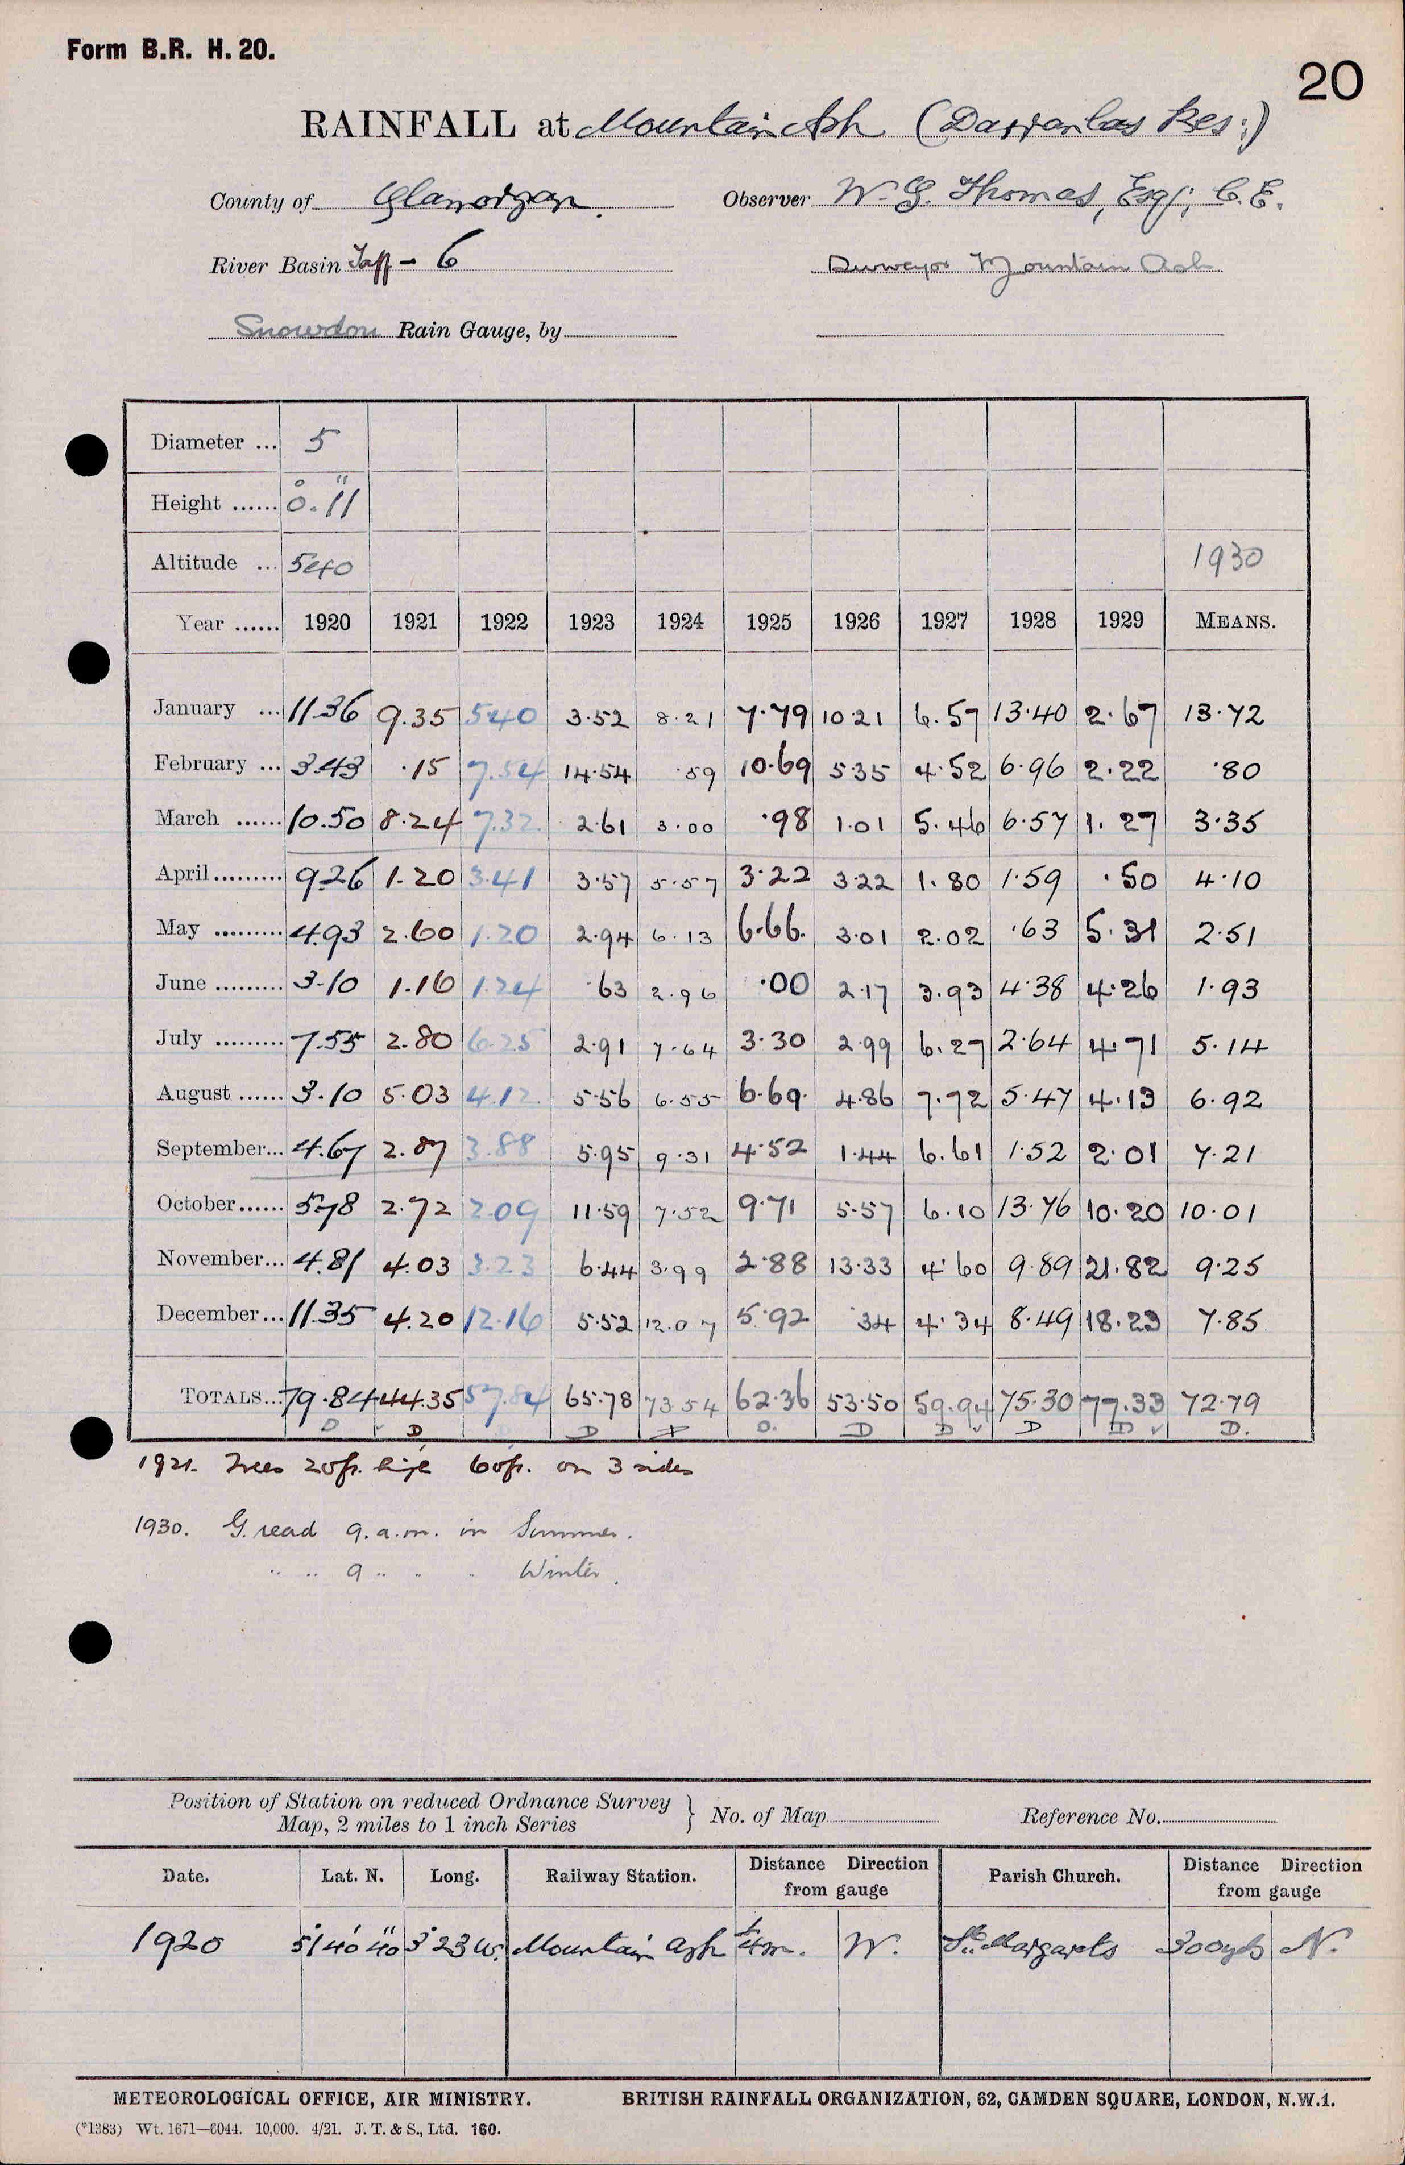 Form B.R. H. 20.
20
RAINFALL at Mountain Ash (Darranlas Res:)
County of Glamorgan. Observer W. G. Thomas, Esq; C.E.
River Basin Taff - 6 Surveyor Mountain Ash
Snowdon Rain Gauge, by
Diameter ... 5
Height ...... 0. 11
Altitude ... 540 1930
Year ...... 1920 1921 1922 1923 1924 1925 1926 1927 1928 1929 MEANS.
January ... 11.36 9.35 5.40 3.52 8.21 7.79 10.21 6.57 13.40 2.67 13.72
February ... 3.43 .15 7.54 14.54 .59 10.69 5.35 4.52 6.96 2.22 .80
March ...... 10.50 8.24 7.32 2.61 3.00 .98 1.01 5.46 6.57 1.27 3.35
April ......... 9.26 1.20 3.41 3.57 5.57 3.22 3.22 1.80 1.59 .50 4.10
May ......... 4.93 2.60 1.20 2.94 6.13 6.66 3.01 2.02 .63 5.31 2.51
June ......... 3.10 1.16 1.24 .63 2.96 .00 2.17 3.93 4.38 4.26 1.93
July ......... 7.55 2.80 6.25 2.91 7.64 3.30 2.99 6.27 2.64 4.71 5.14
August ...... 3.10 5.03 4.12 5.56 6.55 6.69 4.86 7.72 5.47 4.13 6.92
September... 4.67 2.87 3.88 5.95 9.31 4.52 1.44 6.61 1.52 2.01 7.21
October...... 5.78 2.72 2.09 11.59 7.52 9.71 5.57 6.10 13.76 10.20 10.01
November... 4.81 4.03 3.23 6.44 3.99 2.88 13.33 4.60 9.89 21.82 9.25
December... 11.35 4.20 12.16 5.52 12.07 5.92 .34 4.34 8.49 18.23 7.85
TOTALS... 79.84 44.35 57.84 65.78 73.54 62.36 53.50 59.94 75.30 77.33 72.79
D D D D D D D D D D.
1921. Trees 20ft. high 60ft. on 3 sides
1930. G. read 9. a.m. in Summer.
" " 9 " " " Winter.
Position of Station on reduced Ordnance Survey Map, 2 miles to 1 inch Series } No. of Map Reference No.
Date. Lat. N. Long. Railway Station. Distance Direction from gauge Parish Church. Distance Direction from gauge
1920 51° 40' 40" 3° 23 W. Mountain Ash 1/4 m. W. St. Margarets 300yds N.
METEOROLOGICAL OFFICE, AIR MINISTRY. BRITISH RAINFALL ORGANIZATION, 62, CAMDEN SQUARE, LONDON, N.W.1.
(*1383) Wt. 1671—6044. 10,000. 4/21. J. T. & S., Ltd. 160.